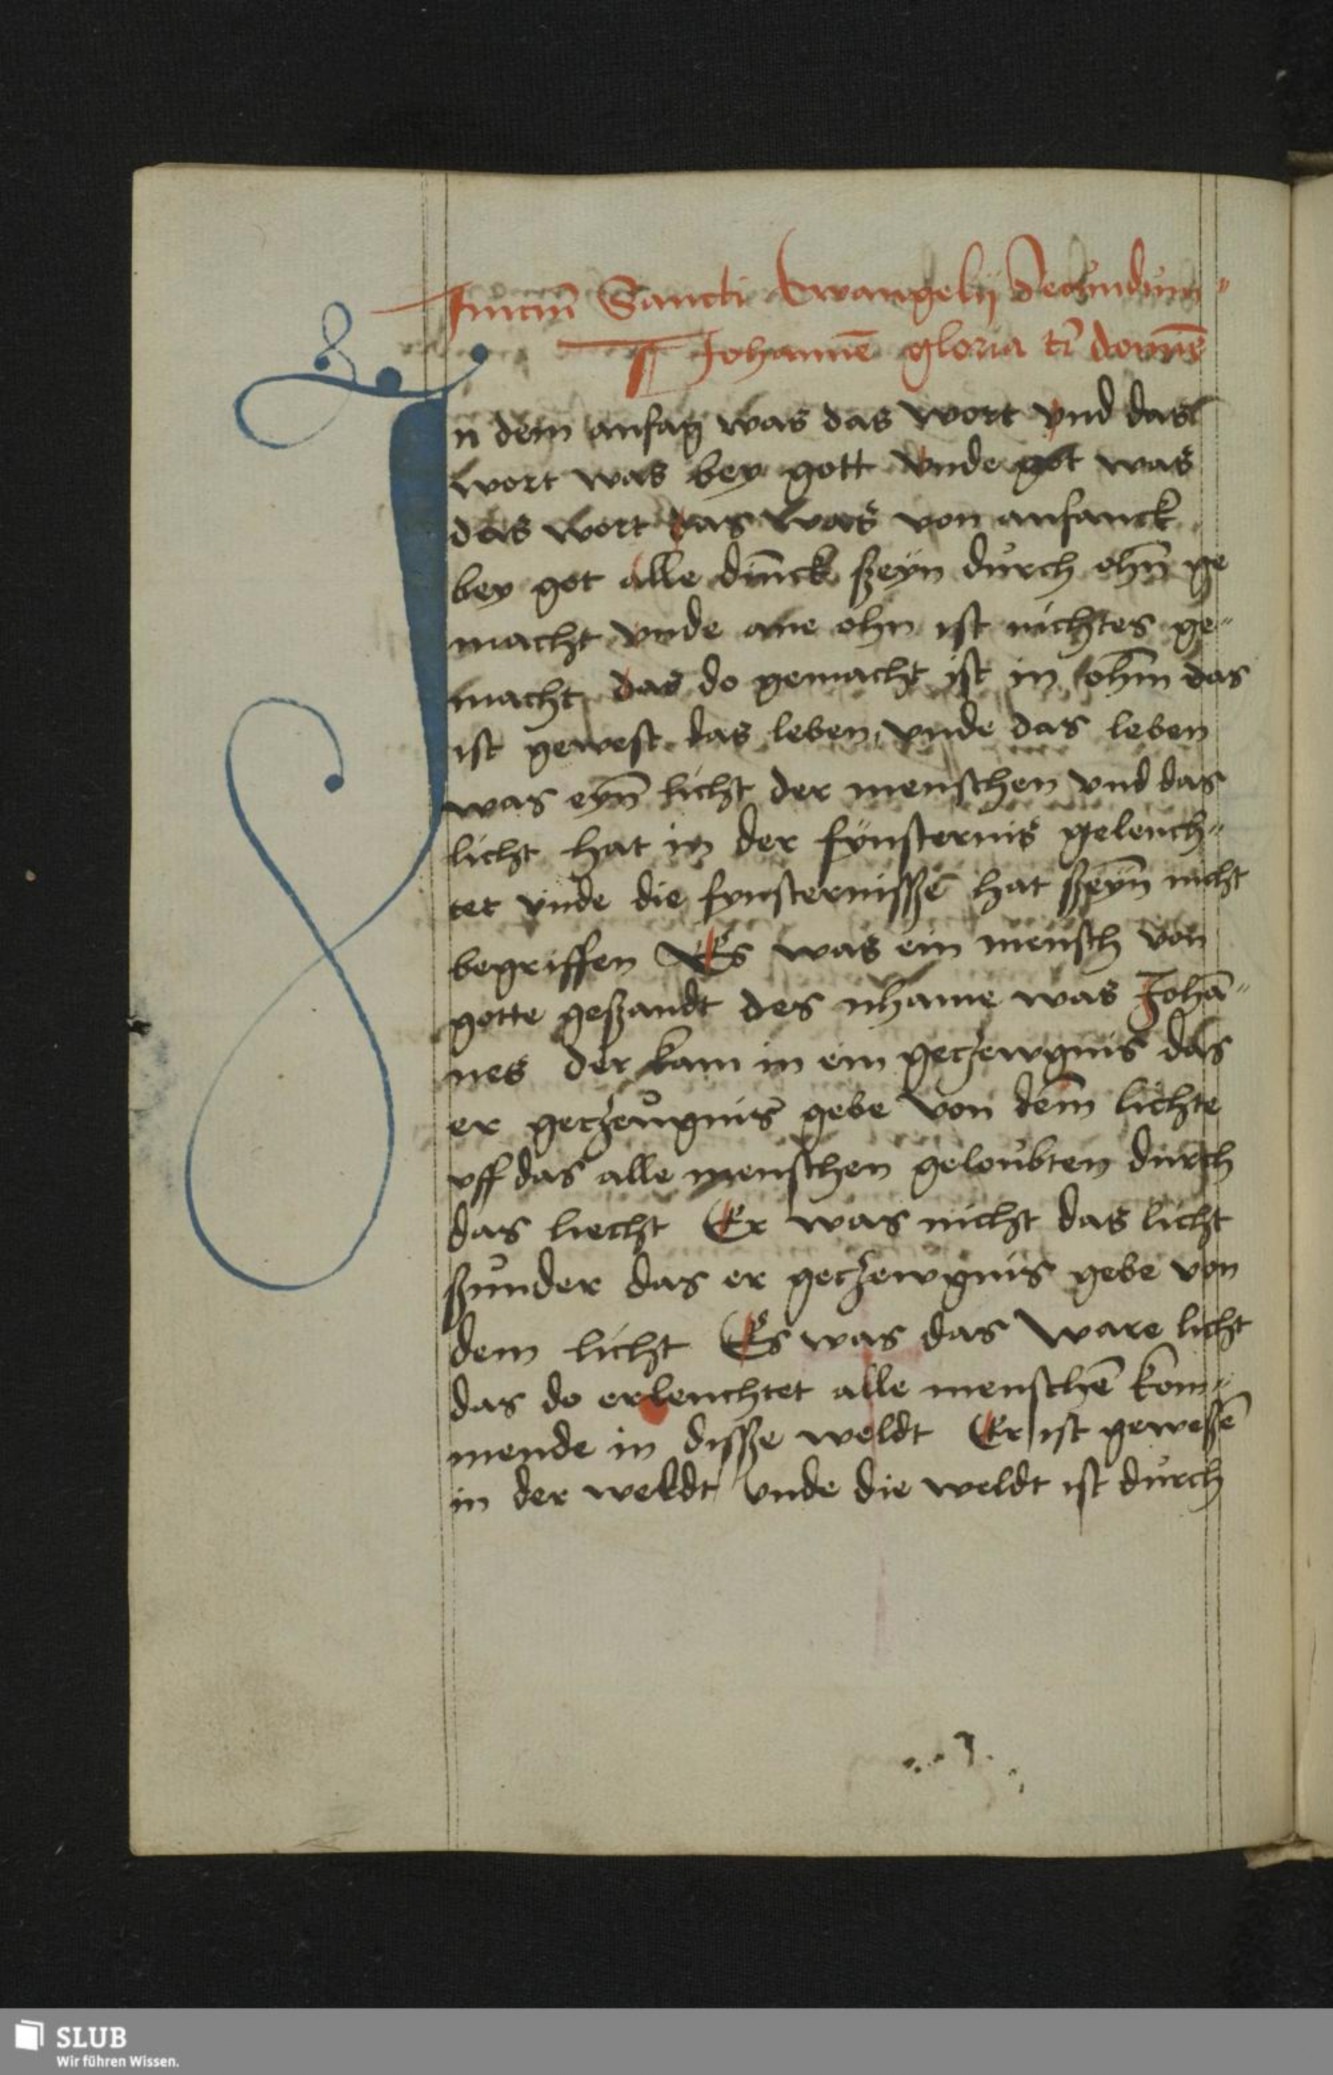 Iniciū Sancti Ewangelij Secundum
Johannē gloria t̄ domīe
In dem anfāg was das wort vnd das
wort was bey gott vnde got was
das wort das was von anfanck
bey got alle dinck szeyn durch ohn̄ ge
macht vnde ane ohn ist nichtes ge-
macht das do gemacht ist in ohm das
ist gewest das leben vnde das leben
was eyn̄ licht der menschen vnd das
licht hat in der fynsternis geleuch-
tet vnde die fynsternissze hat szeyn̄ nicht
begriffen Es was ein mensch von
gotte geszandt des nhame was Johā-
nes der kam in ein geczewgnis das
er geczeugnis gebe von dem̄ lichte
vff das alle menschen geloubten durch
das liecht Er was nicht das licht
szunder das er geczewgnis gebe von
dem licht Es was das ware licht
das do erleuchtet alle menschē kom-
mende in dissze weldt Er ist gewessē
in der weldt vnde die weldt ist durch
SLUB
Wir führen Wissen.